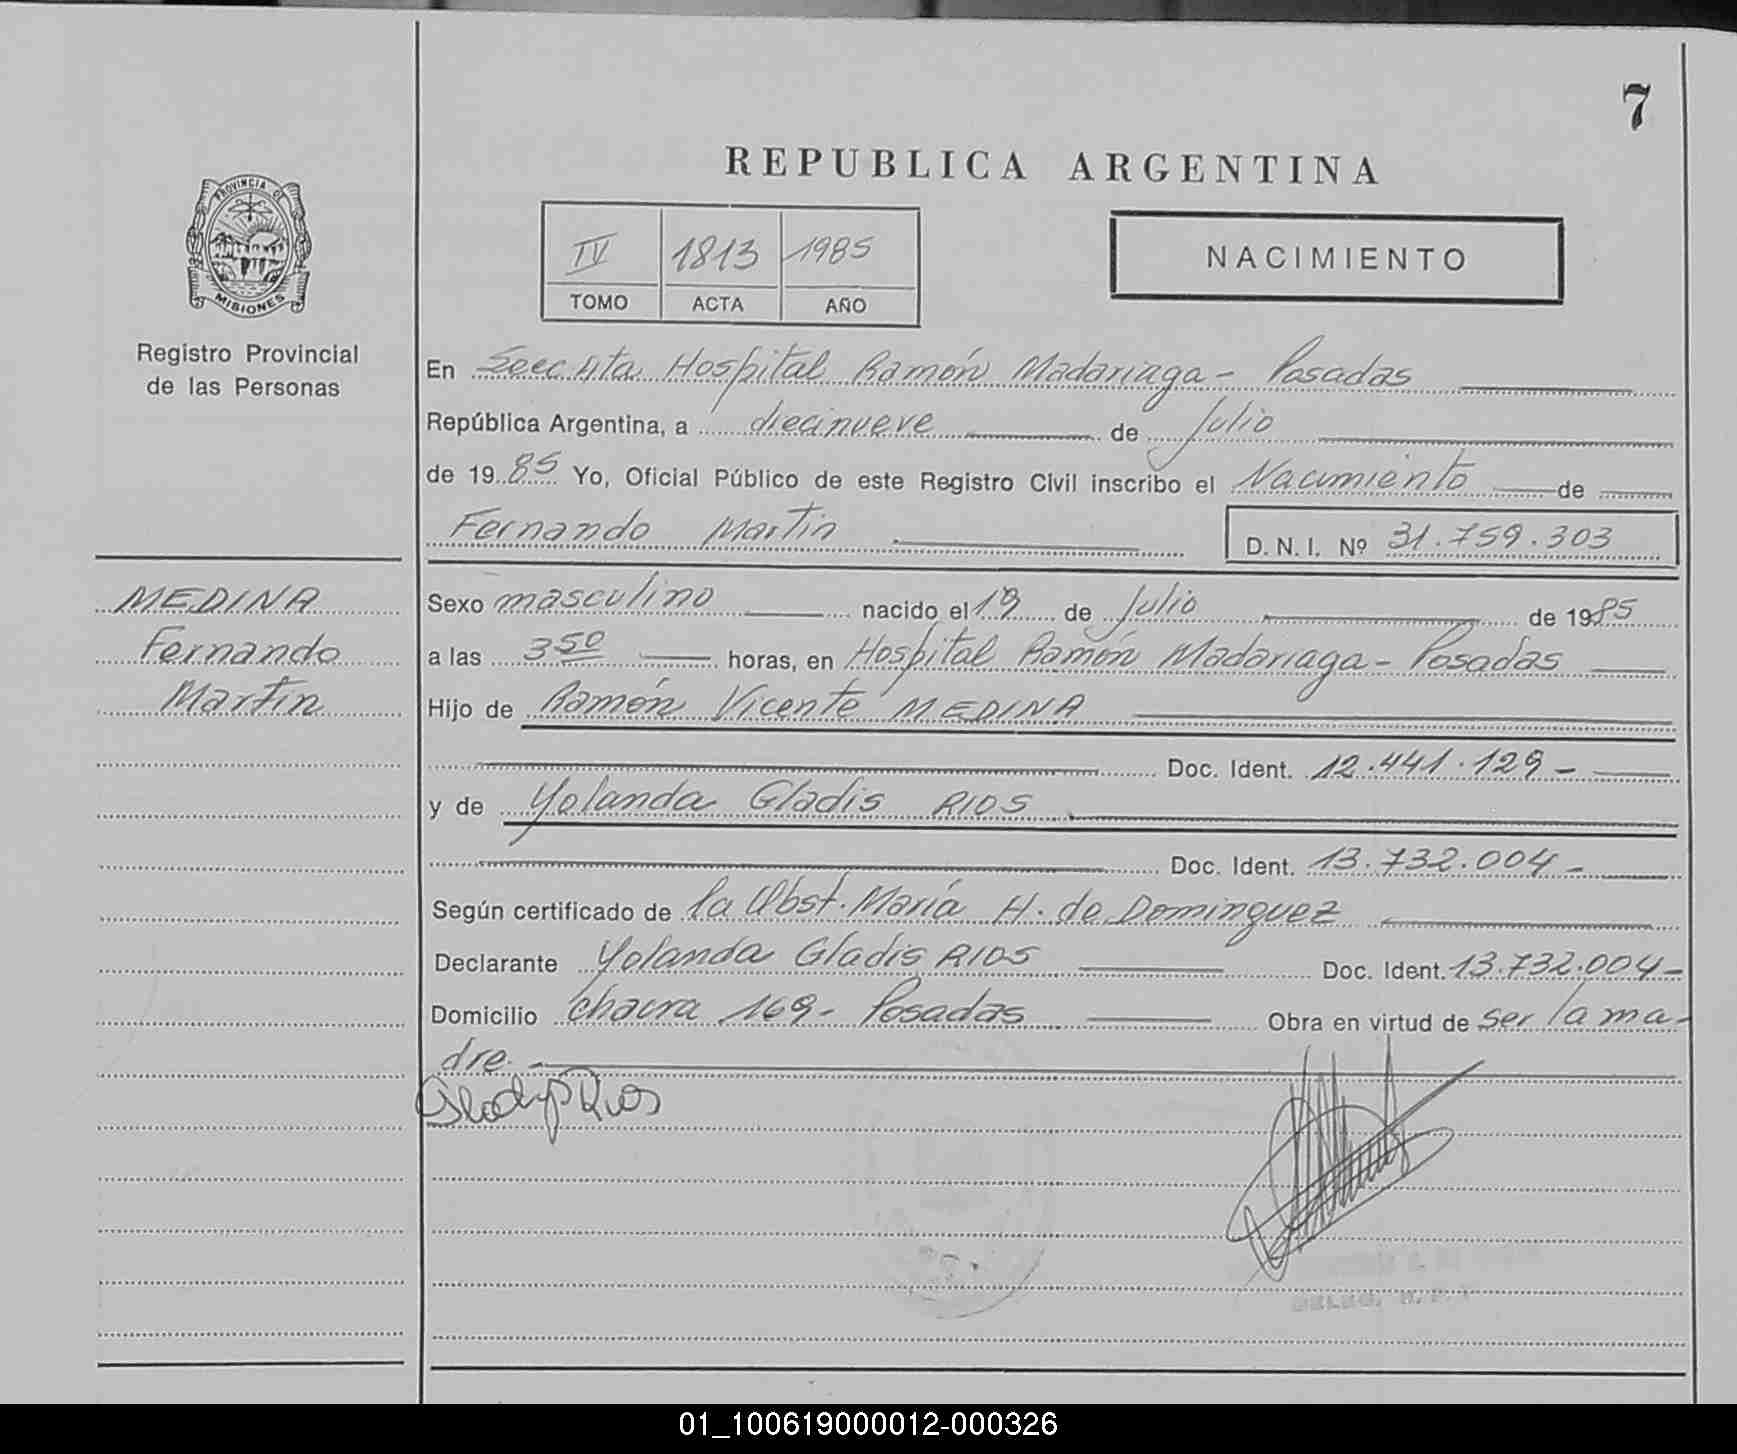 7
REPUBLICA ARGENTINA
PROVINCIA DE
MISIONES
IV 1813 1985
TOMO ACTA AÑO
NACIMIENTO
Registro Provincial
de las Personas
En Secc 4ta Hospital Ramón Madariaga - Posadas
República Argentina, a diecinueve de Julio
de 1985 Yo, Oficial Público de este Registro Civil inscribo el Nacimiento de
Fernando Martin D. N. I. Nº 31.759.303
MEDINA
Fernando
Martin
Sexo masculino nacido el 19 de Julio de 1985
a las 3 50 horas, en Hospital Ramón Madariaga - Posadas
Hijo de Ramón Vicente MEDINA
Doc. Ident. 12.441.129 -
y de Yolanda Gladis RIOS
Doc. Ident. 13.732.004 -
Según certificado de la Obst. María H. de Dominguez
Declarante Yolanda Gladis RIOS Doc. Ident. 13.732.004 -
Domicilio Chacra 169 - Posadas Obra en virtud de ser la ma-
dre.
Gladys Rios
01_100619000012-000326